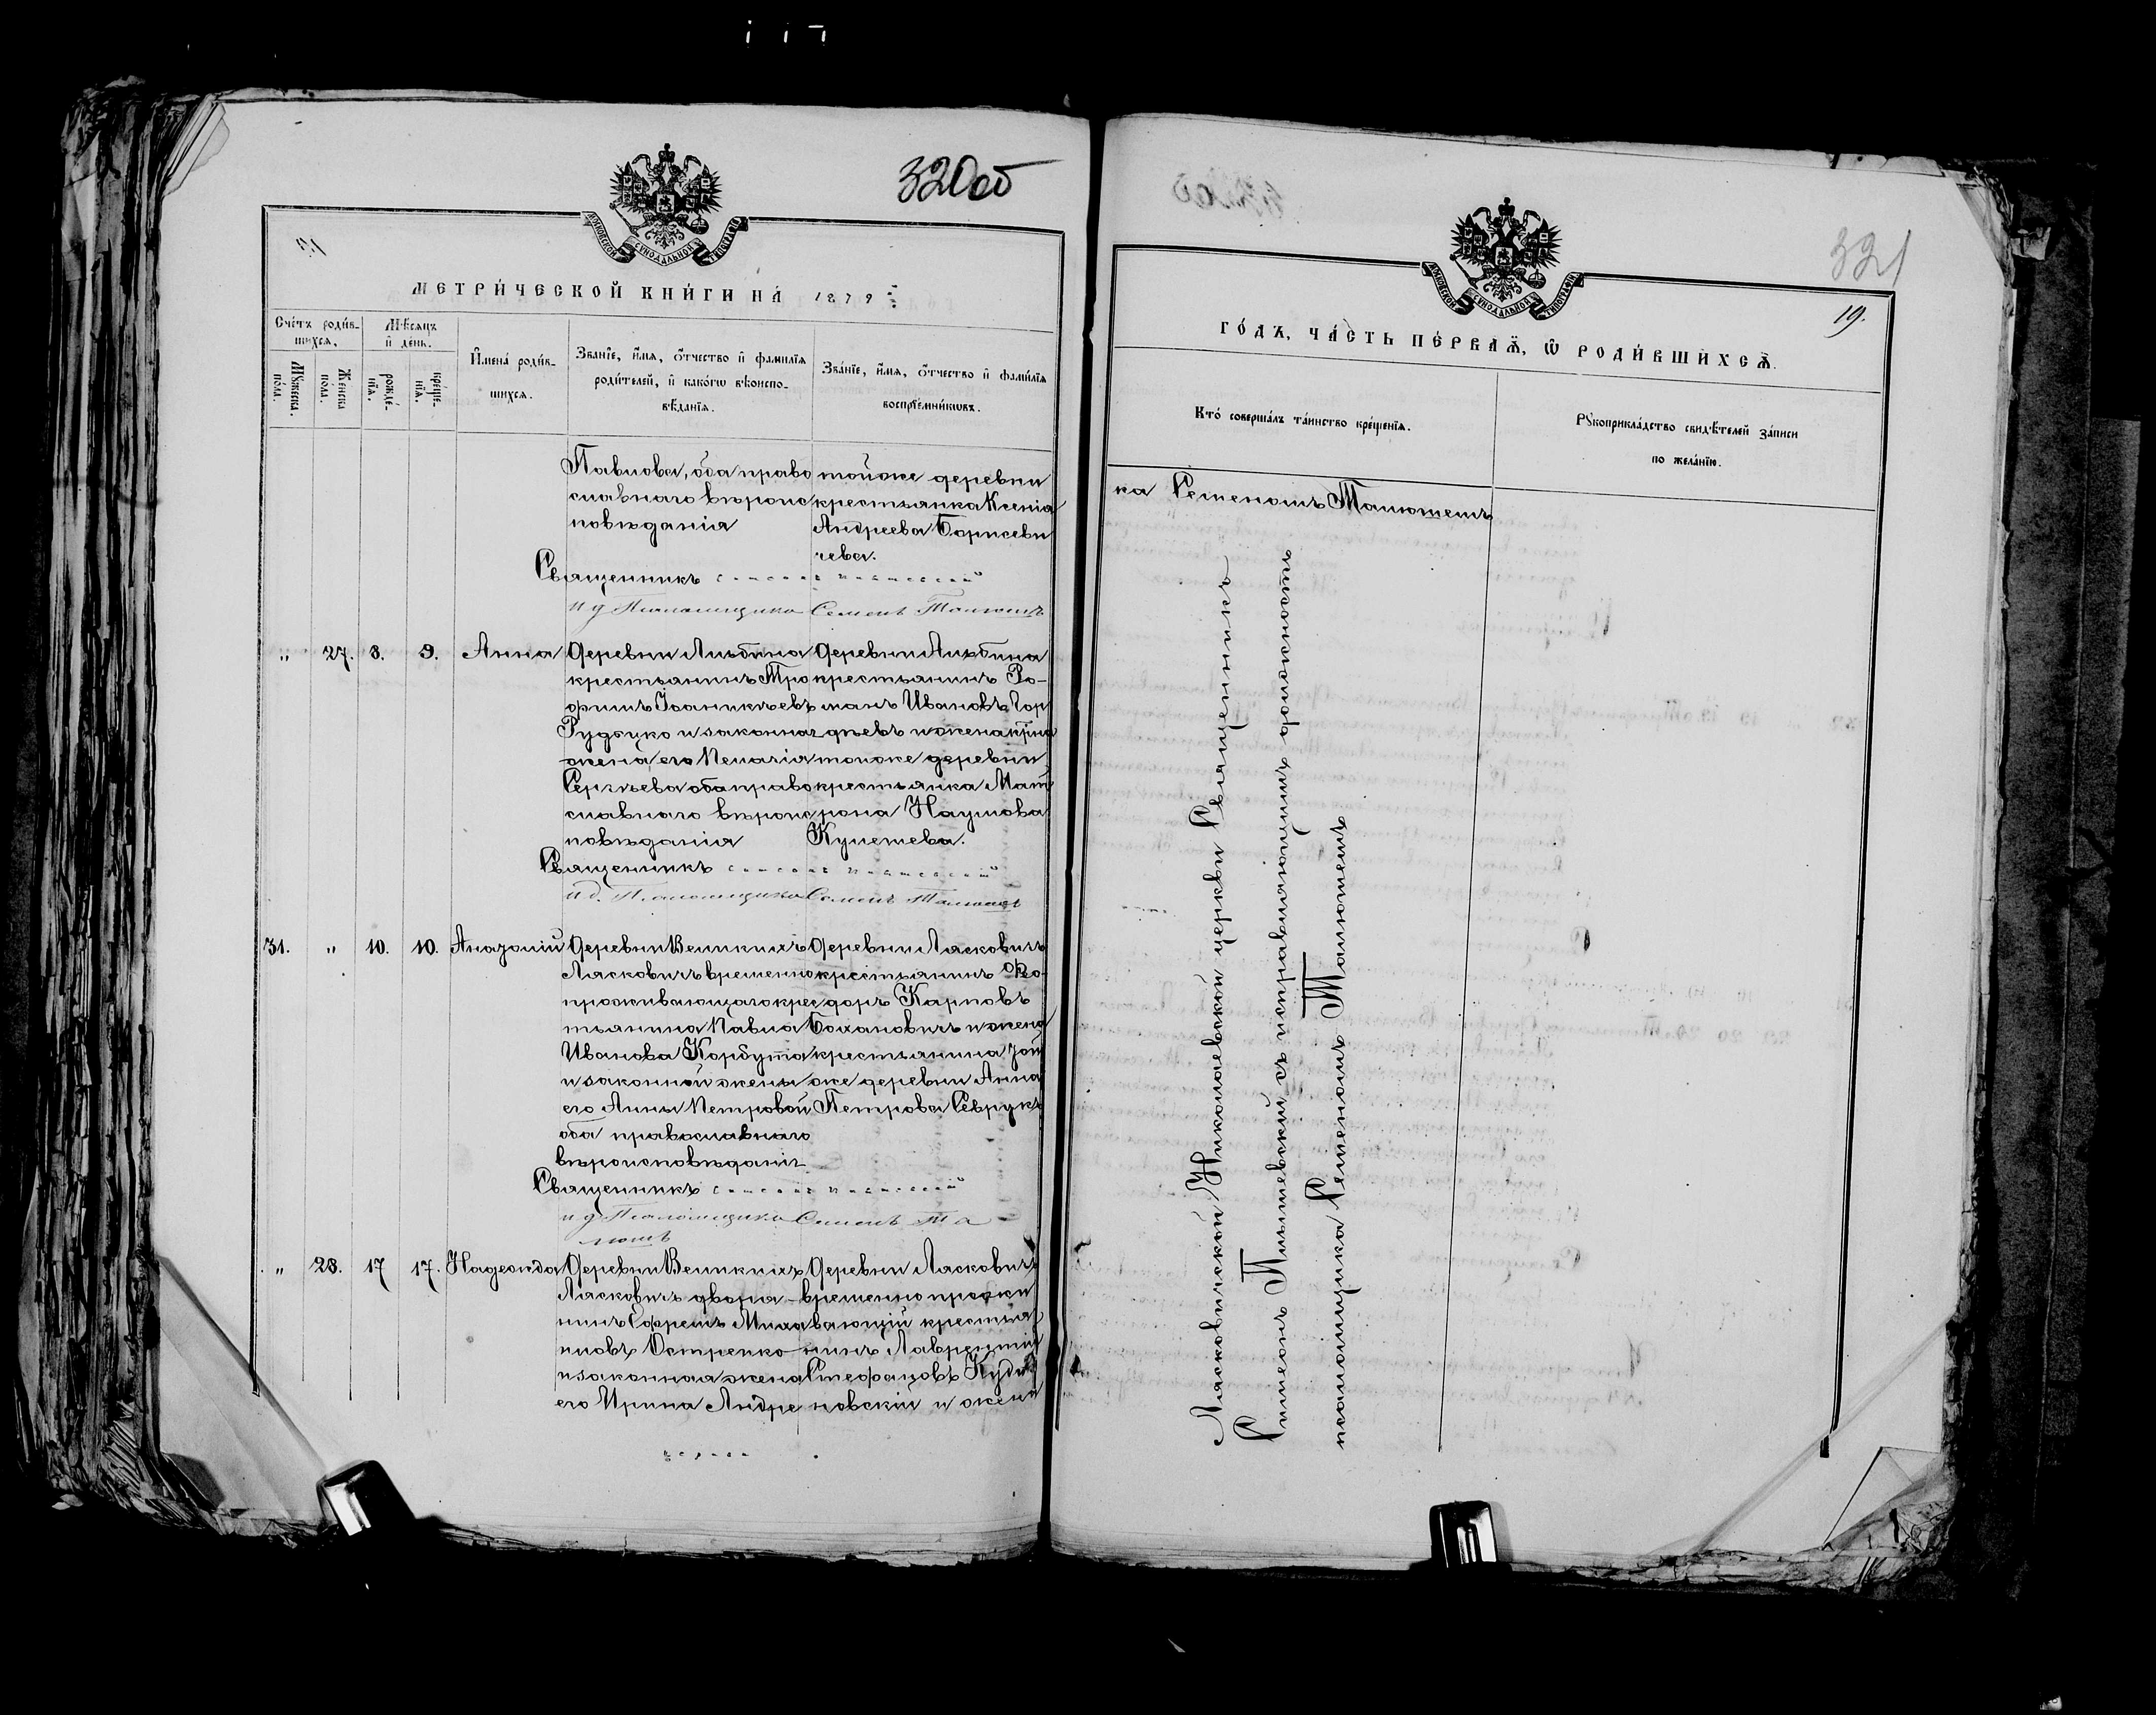 320об
МЕТРИ́ЧЕСКОЙ КНИ́ГИ НА́ 1879
Сче́тъ роди́в-
шихся.
Мѣ́сяцъ
и҆ де́нь.
Мꙋ́жеска по́ла.
Же́нска по́ла.
рожде́-нїѧ.
креще́-нїѧ.
И҆мена̀ роди́в-
шихся.
Зва́нїе, и҆́мѧ, ѻ҆́тчество и҆ фами́лїѧ
роди́телей, и҆ како́гѡ вѣ́роиспо-
вѣ́данїѧ.
Зва́нїе, и҆́мѧ, ѻ҆́тчество и҆ фами́лїѧ
воспрїе́мникѡвъ.
Павлова, оба право
славнаго вѣроис
повѣданія
тойже деревни
крестьянка Ксенія
Андреева Борисеви
чева.
Священникъ
и д Псаломщика Семенъ Талюшъ
„ 27. 8. 9. Анна
Деревни
крестьянинъ Тро
фимъ Іоаникіевъ
Рудзько и законная
жена его Пелагія
Сергѣева оба право
славнаго вѣроис
повѣданія
Деревни
крестьянинъ Ро-
манъ Ивановъ Гор
дѣевъ и жена
тойже деревни
крестьянка Мат
рона Наумова
Священникъ
и д. Псаломщика Семенъ Талюшъ
31. „ 10. 10.
Деревни Великихъ
Лясковичъ временно
проживающаго крес
тьянина Павла
Иванова Корбута
и законной жены
его Анны Петровой
оба православнаго
вѣроисповѣданія
Деревни Лясковичъ
крестьянинъ Ѳео-
доръ Карповъ
Боханович и жена
крестьянина той
же деревни Анна
Петрова Севрукъ
Священникъ
и д Псаломщика Семенъ Та
люшъ
„ 28. 17 17. Надежда
Деревни Великихъ
Лясковичъ дворя-
нинъ Ефремъ Миха
иловъ Острейко
и законная жена
его Ирина Андре
Деревни Лясковичъ
временно прожи
вающій крестья
нинъ Лаврентій
Стефановъ
новскій и жена
321
19.
ГО́ДЪ, ЧА́СТЬ ПЕ́РВАѦ, Ѡ҆ РОДИ́ВШИХСѦ.
Кто̀ соверша́лъ та́инство креще́нїѧ.
Рꙋкоприкла́дство свидѣ́телей за́писи
по жела́нїю.
ка Семеномъ Талюшемъ
Лясковичской Николаевской церкви Священникъ
Симеонъ съ исправляющимъ должность
псаломщика Семеномъ Талюшемъ